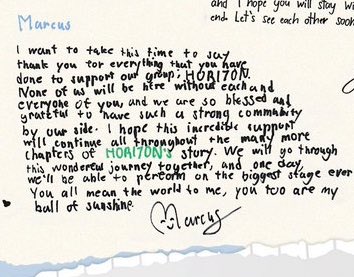 and I hope you will stay wi
end. Let's see each other soon
Marcus
I want to take this time to say
thank you for everything that you have
done to support our group; HORI7ON.
None of us will be here without each and
everyone of you, and we are so blessed and
grateful to have such a strong community
by our side. I hope this incredible support
will continue all throughout the many more
chapters of HORI7ON's story. We will go through
this wondered journey together, and one day,
we'll be able to perform on the biggest stage ever
You all mean the world to me, you too are my
ball of sunshine.
Marcus